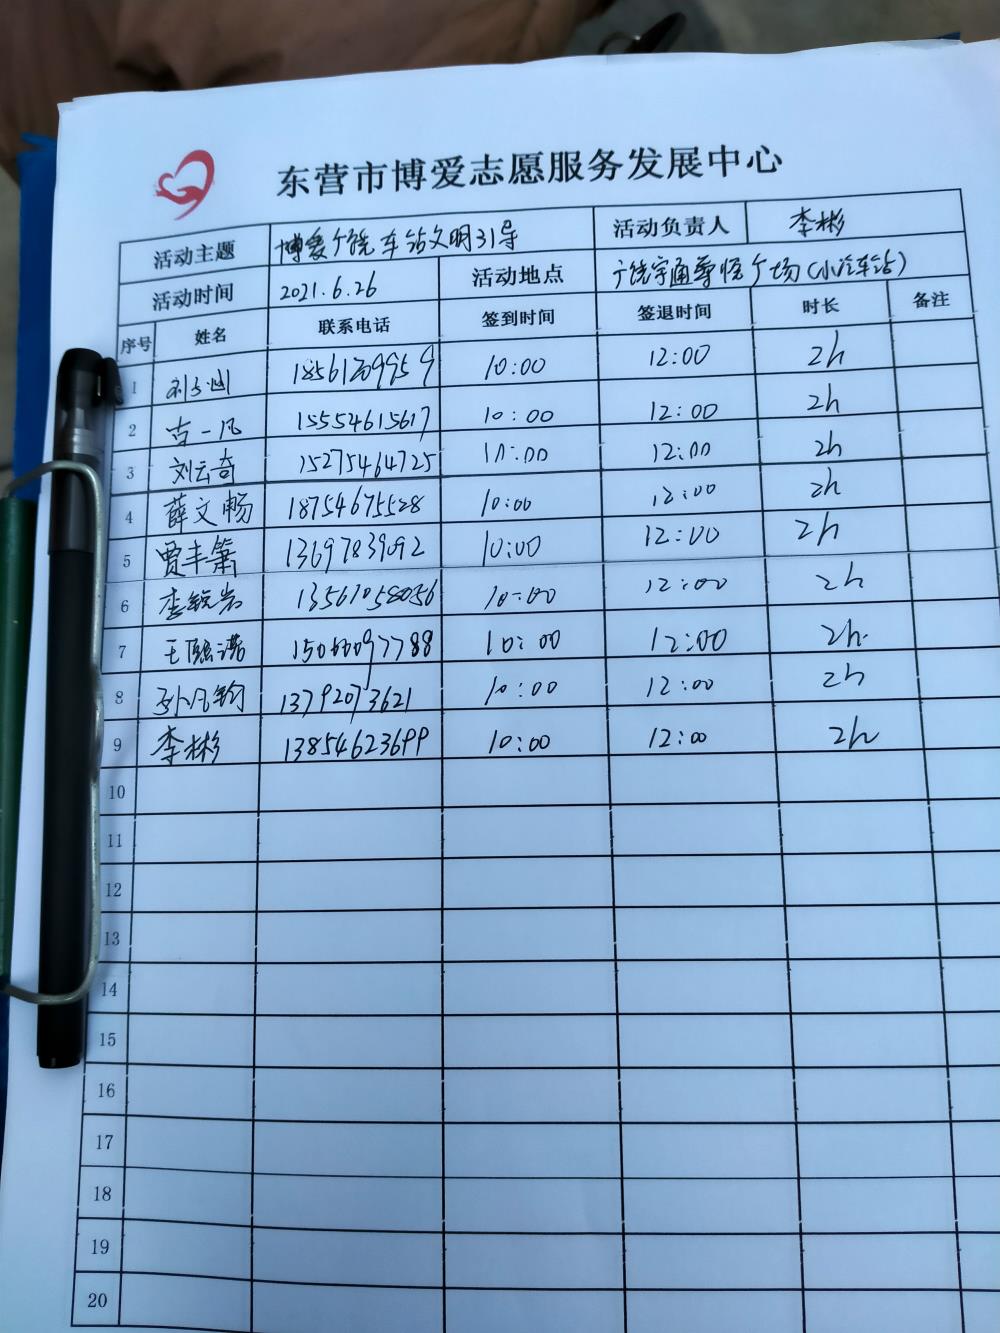 东营市博爱志愿服务发展中心
活动主题 博爱广饶车站文明引导 活动负责人 李彬
活动时间 2021.6.26 活动地点 广饶宇通尊悦广场(小汽车站)
序号 姓名 联系电话 签到时间 签退时间 时长 备注
1 10:00 12:00 2h
2 古一凡 15554615617 10:00 12:00 2h
3 刘云奇 15275464725 10:00 12:00 2h
4 薛文畅 18754675528 10:00 12:00 2h
5 贾丰箫 13697839092 10:00 12:00 2h
6 李锐岩 13561058056 10:00 12:00 2h
7 10:00 12:00 2h.
8 孙凡钧 13792073621 10:00 12:00 2h
9 李彬 13854623699 10:00 12:00 2h
10
11
12
13
14
15
16
17
18
19
20